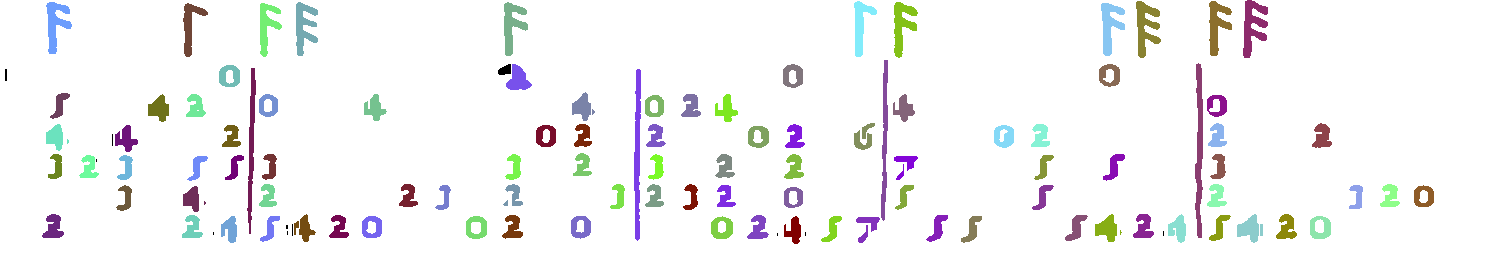 0 0 0
5 4 2 0 4 4 0 2 4 4 0
4 4 2 0 2 2 0 2 6 0 2 2 2
3 2 3 5 5 3 3 2 3 2 2 7 5 5 3
3 4 2 2 3 2 3 2 3 2 0 5 5 2 3 2 0
2 2 4 5 4 2 0 0 2 0 0 2 4 5 7 5 5 5 4 2 4 5 4 2 0